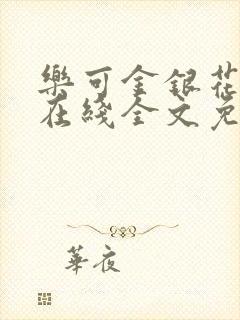 樂可金銀花
在綫全文免
華夜